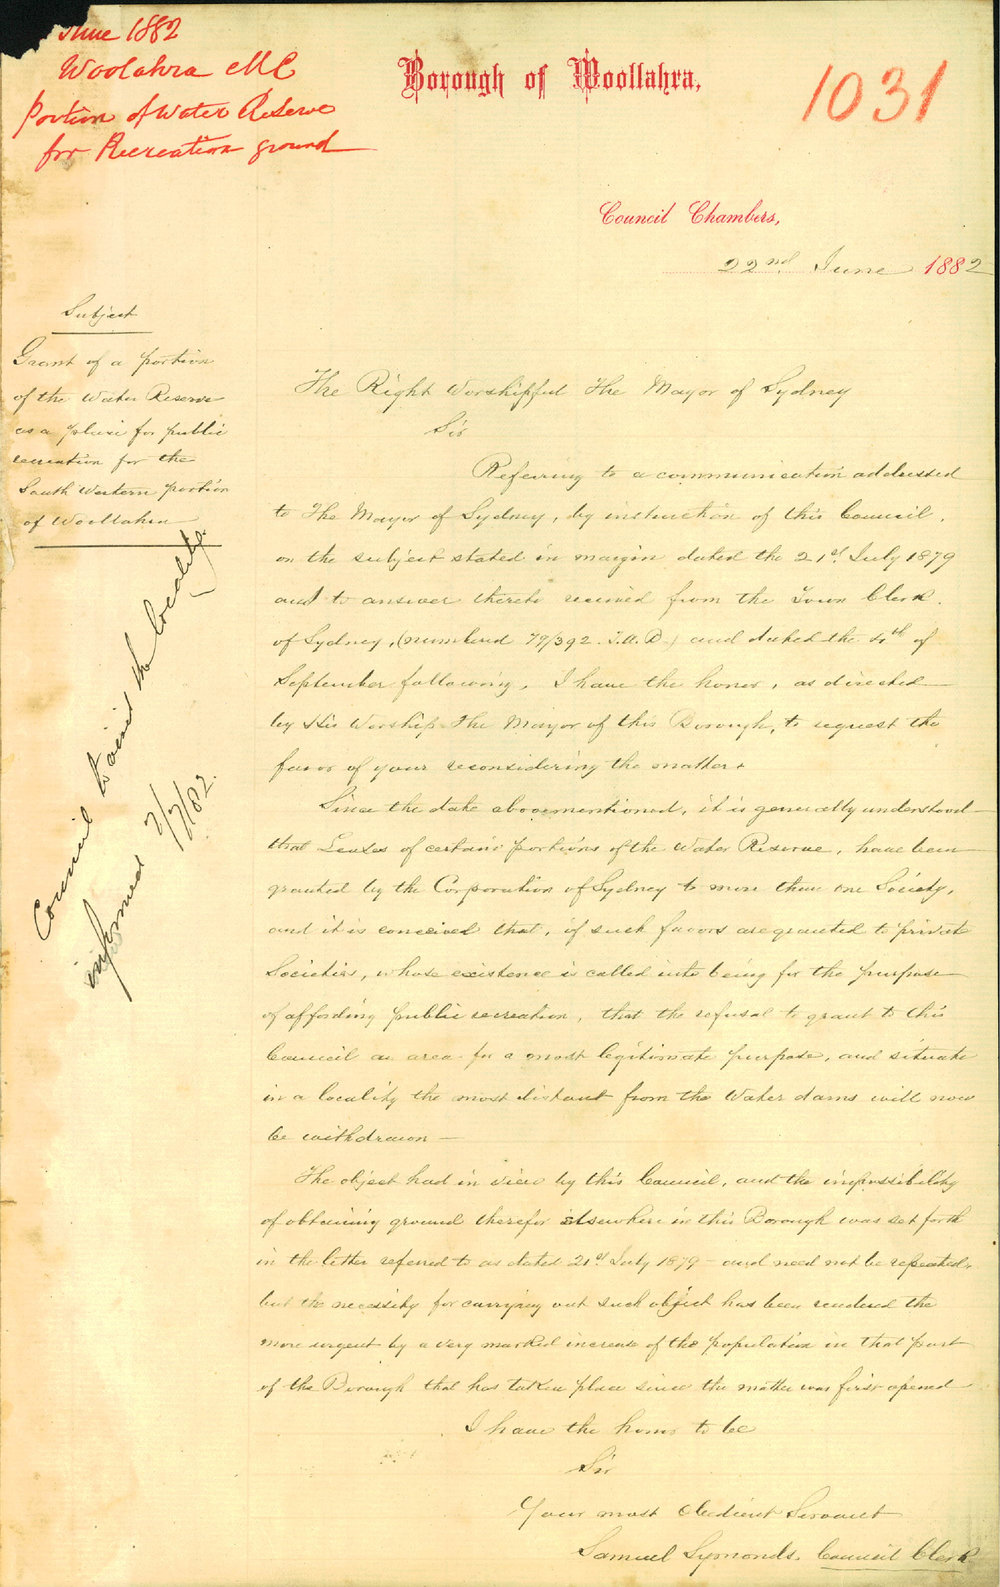 June 1882
Woolahra M C
Portion of Water Reserve
for Recreation ground
Borough of Woollahra.
1031
Council Chambers,
22nd June 1882
Subject
Grant of a portion
of the Water Reserve
as a place for public
recreation for the
South Western portion
of Woollahra
Council to visit the locality.
informed 7/7/82.
The Right Worshipful The Mayor of Sydney
Sir
Refering to a communication addressed
to The Mayor of Sydney, by instruction of this Council,
on the subject stated in margin dated the 21st July 1879
and to answer thereto received from the Town Clerk
of Sydney, (numbered 79/392. ) and dated the of
September following, I have the honor, as directed
by His Worship The Mayor of this Borough, to request the
favor of your reconsidering the matter.
Since the date abovementioned, it is generally understood
that Leases of certain portions of the Water Reserve, have been
granted by the Corporation of Sydney to more than one Society,
and it is conceived that, if such favors are granted to private
Societies, whose existence is called into being for the purpose
of affording public recreation, that the refusal to grant to this
Council an area for a most legitimate purpose, and situate
in a locality the most distant from the Water dams will now
be withdrawn —
The object had in view by this Council, and the impossibility
of obtaining ground therefor elsewhere in this Borough was set forth
in the letter referred to as dated 21st July 1879 - and need not be repeated,
but the necessity for carrying out such object has been rendered the
more urgent by a very marked increase of the population in that part
of the Borough that has taken place since the matter was first opened
I have the honor to be
Sir
Your most obedient Servant
Samuel Symonds. Council Clerk